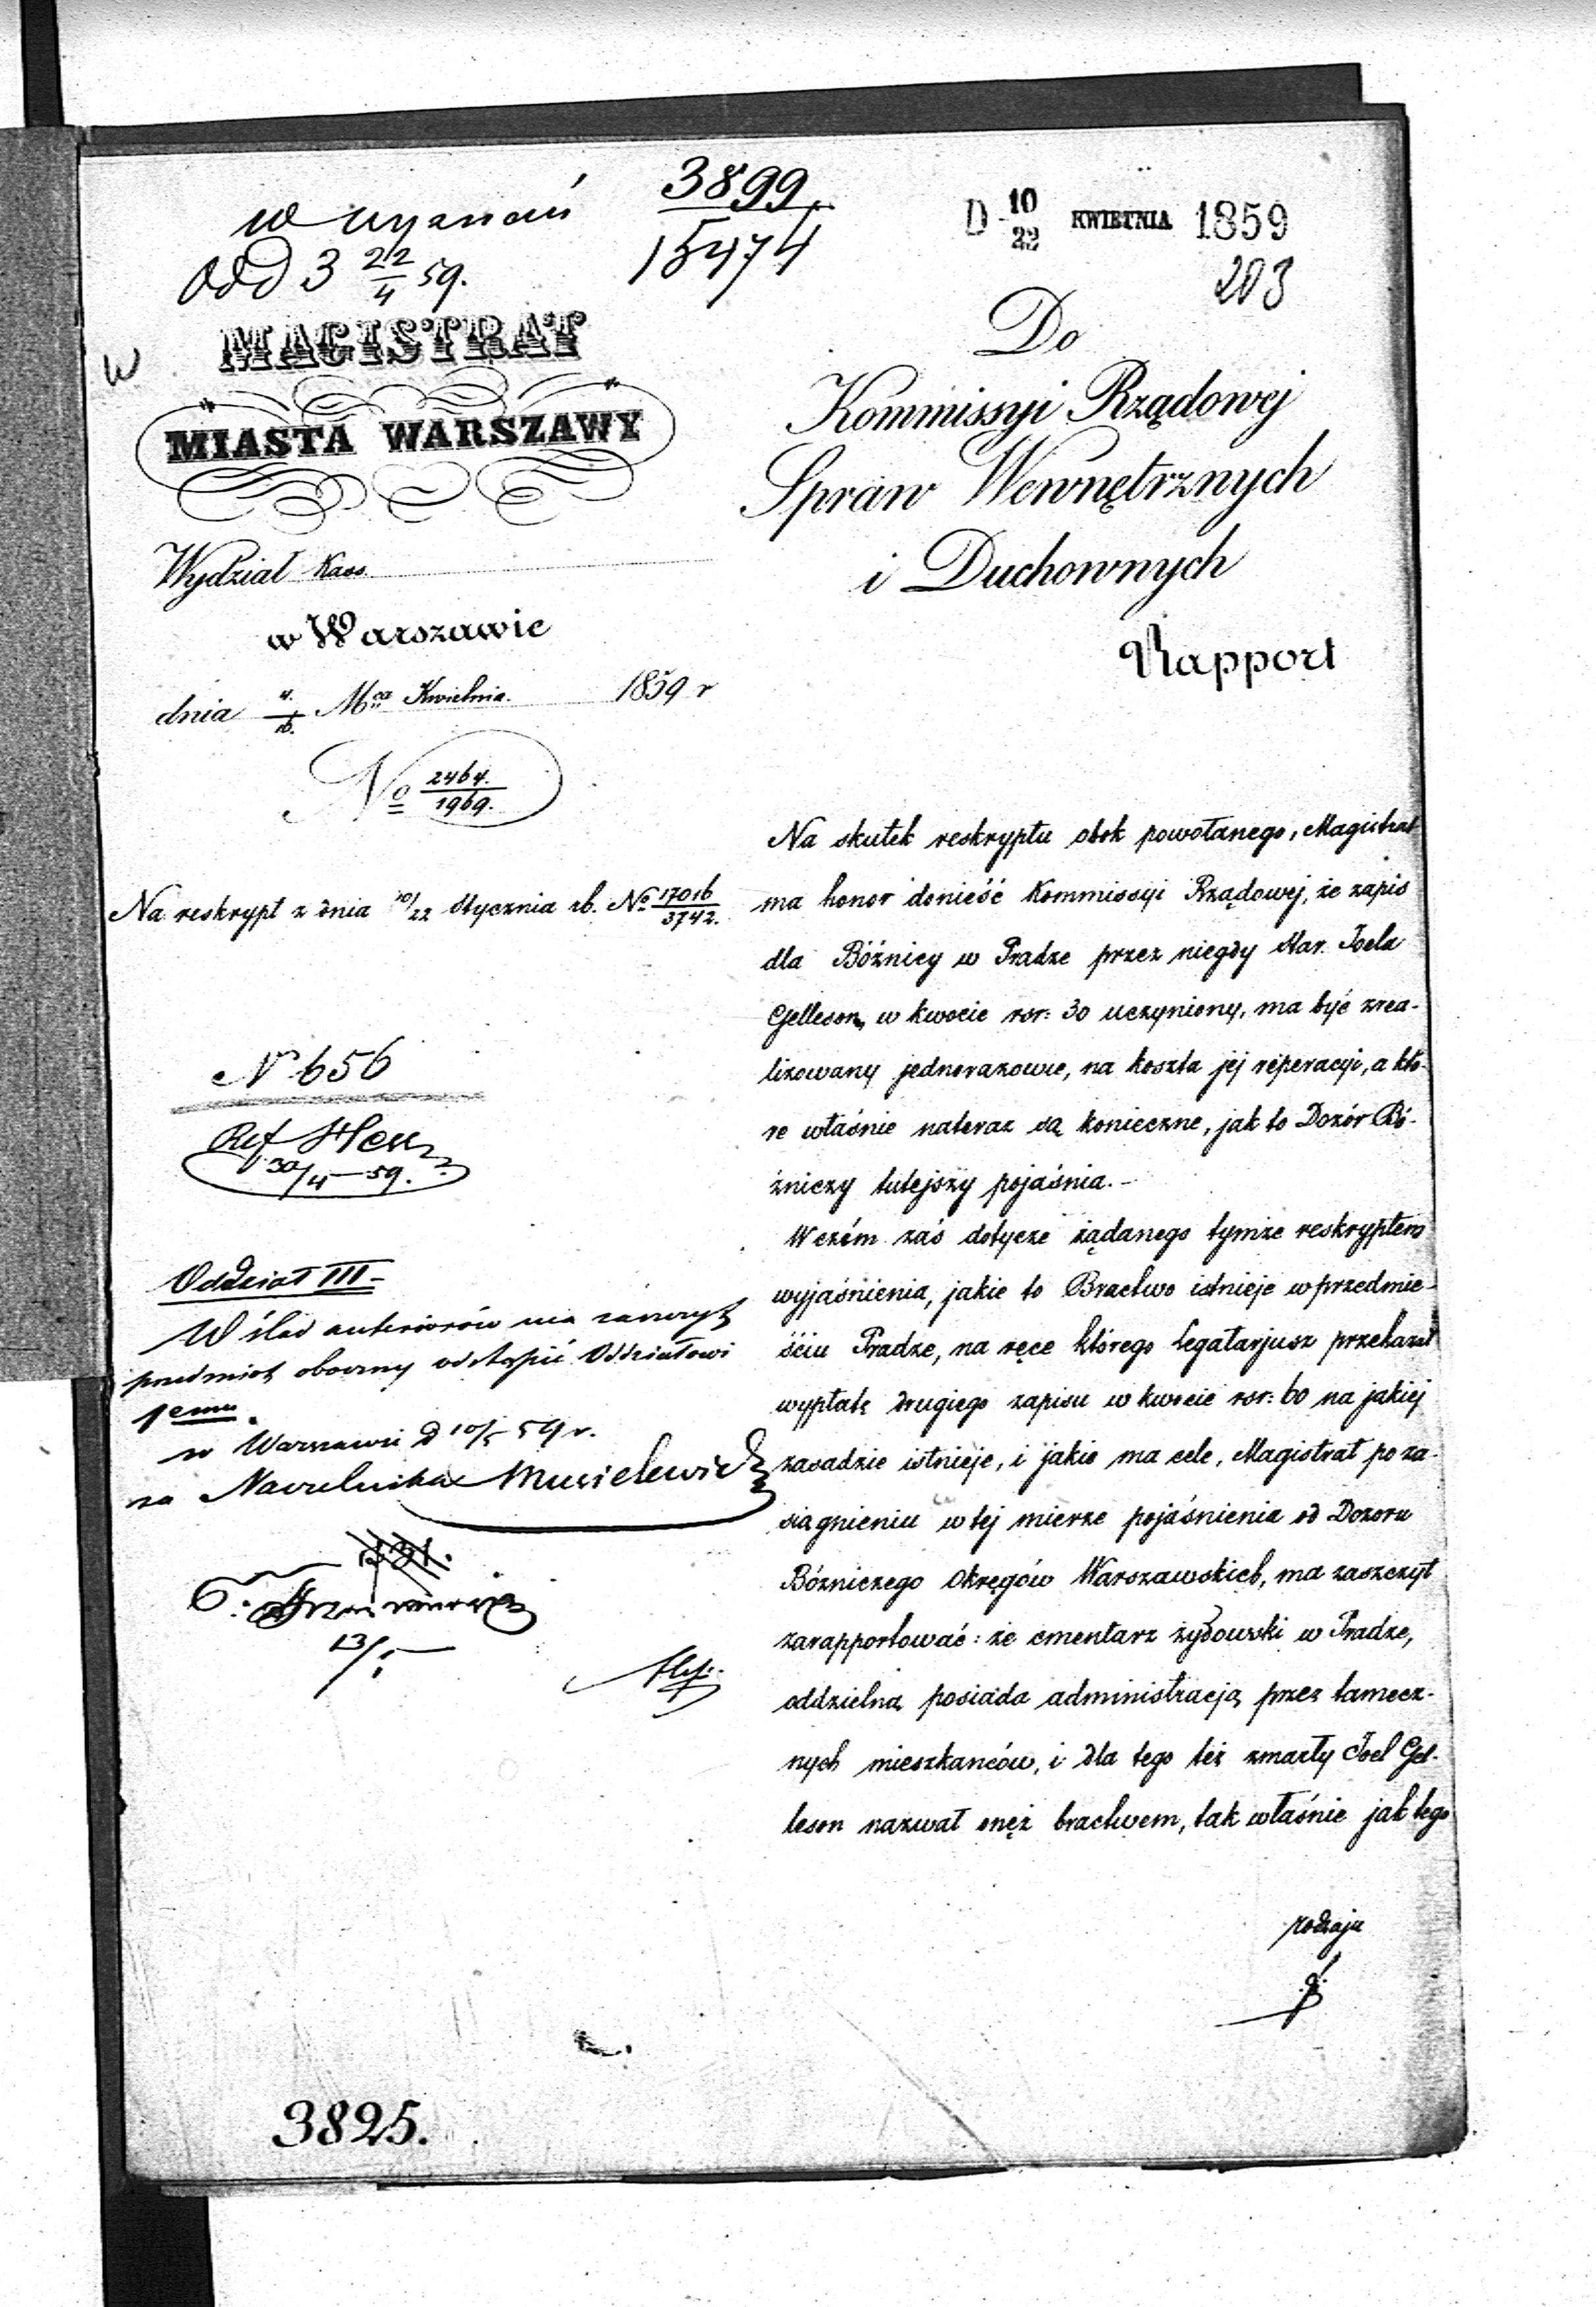 W wyznań
Odd 3 22/4 59.
3899
15474
D 10/22 KWIETNIA 1859
203
W
MAGISTRAT
MIASTA WARSZAWY
Wydział Kass.
w Warszawie
dnia 4./16. Mca Kwietnia. 1859 r
No 2464./1969.
Na reskrypt z dnia 10/22 Stycznia rb. No 17016/3742.
N 656
Ref
30/4 – 59.
Oddział III
W ślad anteriorów ma zaszczyt
przedmiot oboczny odstąpić Oddziałowi
1emu.
w Warszawie d 10/5 59 r.
za Naczelnika Musielewicz
13/5
3825.
Do
Kommissyi Rządowej
Spraw Wewnętrznych
i Duchownych
Rapport
Na skutek reskryptu obok powołanego, Magistrat
ma honor donieść Kommissyi Rządowej, że zapis
dla Bóżnicy w Pradze przez niegdy Star. Joela
Gelleson, w kwocie rsr: 30 uczyniony, ma być zrea-
lizowany jednorazowie, na koszta jej reperacyi, a któ-
re właśnie nateraz są konieczne, jak to Dozór Bó-
żniczy tutejszy pojaśnia. –
W czém zaś dotycze żądanego tymże reskryptem
wyjaśnienia, jakie to Bractwo istnieje w przedmie-
ściu Pradze, na ręce którego Legatarjusz przekazał
wypłatę drugiego zapisu w kwocie rsr: 60 na jakiej
zasadzie istnieje, i jakie ma cele, Magistrat po za-
siągnieniu w tej mierze pojaśnienia od Dozoru
Bóżniczego Okręgów Warszawskich, ma zaszczyt
zarapportować: że cmentarz żydowski w Pradze,
oddzielną posiada administracją przez tamecz-
nych mieszkańców, i dla tego też zmarły Joel Gel-
leson nazwał onęż bractwem, tak właśnie jak tego
rodzaju